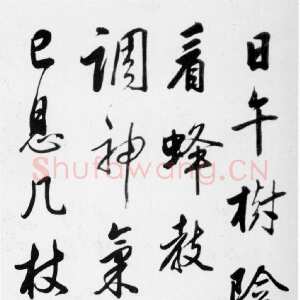 日午樹陰
看蜂教
調神氣
已息几杖
Shufawang.CN